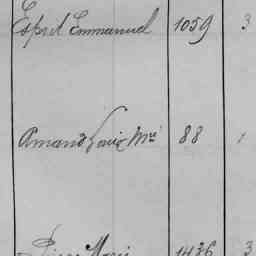 Esprit Emmanuel 1059 3
Amand Louis Mie 88 1
Pierre Marie 1436 3